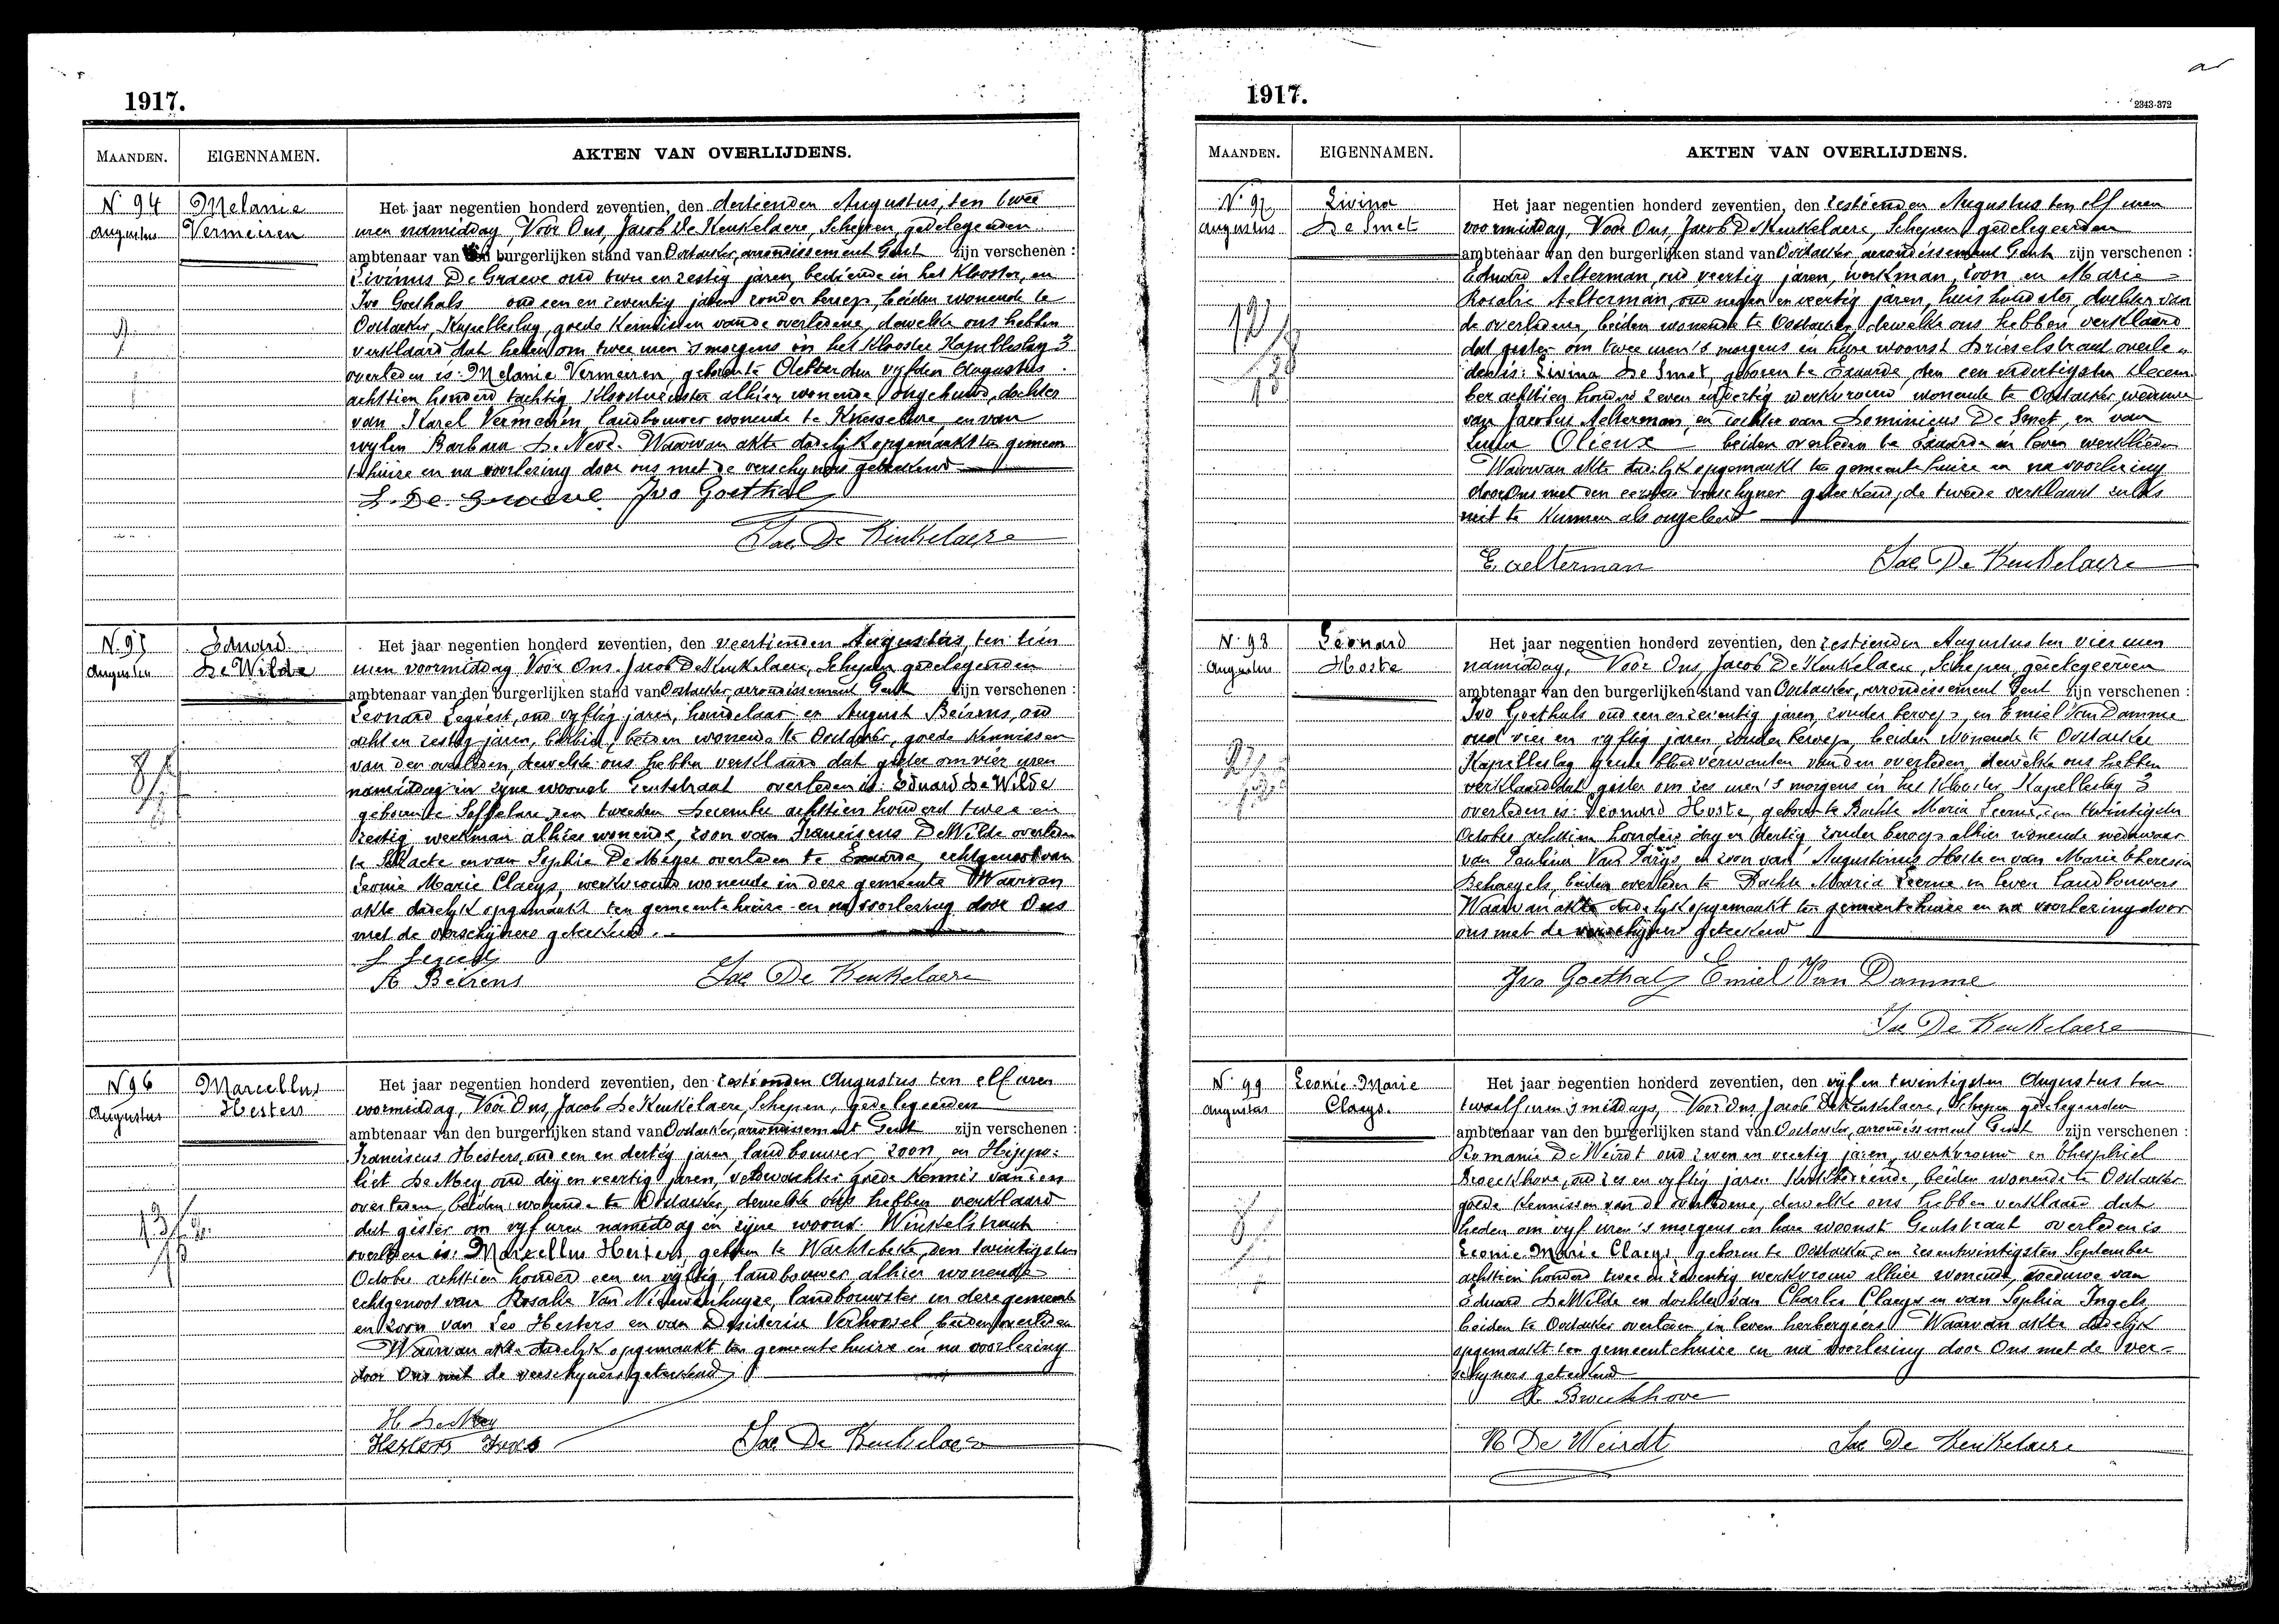 1917.
MAANDEN. EIGENNAMEN. AKTEN VAN OVERLIJDENS.
N. 94
Augustus
Melanie
Vermeiren
Het jaar negentien honderd zeventien, den dertienden Augustus, ten twee
uren namiddag, Voor Ons, Jacob De Keukelaere, Schepen, gedelegeerden
ambtenaar van den burgerlijken stand van Oostacker, arrondissement Gent zijn verschenen :
Livinus De Graeve oud twee en zestig jaren, bediende in het Klooster, en
Ivo Goethals oud een en zeventig jaren zonder beroep, beiden wonende te
Oostacker, Kapelleslag, goede Kennissen van de overledene, dewelke ons hebben
verklaard dat heden om twee uren 's morgens in het Klooster Kapelleslag 3
overleden is: Melanie Vermeiren, geboren te den vyfden Augustus
achttien honderd tachtig Kloosterzuster alhier wonende ongehuwd, dochter
van Karel Vermeiren, landbouwer wonende te Knesselare, en van
wylen Barbara De Neve. Waarvan akte dadelyk opgemaakt ten gemeen
tehuize en na voorlezing door ons met de verschyners geteekend
L. De Graeve Ivo Goethals
Jac De Keukelaere
N. 95
Augustus
Eduard
De Wilde
Het jaar negentien honderd zeventien, den veertienden Augustus, ten tien
uren voormiddag Voor Ons. Jacob De Keukelaere, Schepen gedelegeerden
ambtenaar van den burgerlijken stand van Oostacker, arrondissement Gent zijn verschenen :
Leonard Segiest, oud vyftig jaren, handelaar en August Beirens, oud
acht en zestig jaren, beiden wonende te Oostacker, goede Kennissen
van den overleden, dewelke ons hebben verklaard dat gister om vier uren
namiddag in zyne woonst Gentstraat overleden is Eduard De Wilde
geboren te Saffelare den tweeden December achttien honderd twee en
zestig werkman alhier wonende, zoon van Franciscus De Wilde overleden
te en van Sophia De Meyer overleden te Evaarde, echtgenoot van
Leonie Marie Claeys, werkvrouw wonende in deze gemeente Waarvan
akte dadelyk opgemaakt ten gemeentehuize en na voorlezing door Ons
met de verschijners geteekend.
A Beirens Jac De Keukelaere
N 96
Augustus
Marcellus
Hesters
Het jaar negentien honderd zeventien, den zestienden Augustus ten elf uren
voormiddag, Voor Ons, Jacob De Keukelaere, Schepen, gedelegeerden
ambtenaar van den burgerlijken stand van Oostacker, arrondissement Gent zijn verschenen :
Franciscus Hesters, oud een en dertig jaren, landbouwer zoon, en Hippo-
liet De Mey oud drij en veertig jaren, veldwachter goede Kennis van den
overleden, beiden wonende te Oostacker, dewelke ons hebben verklaard
dat gister om vyf uren namiddag in zijne woonst Winkelstraat
overleden is: Marcellus Hesters geboren te Wachtebeke, den twintigsten
October achttien honderd een en vijftig landbouwer alhier wonende
echtgenoot van Rosalie Van Nieuwenhuyse, landbouwster in deze gemeente
en zoon van Leo Hesters en van Desideria Verhoosel, beiden overleden
Waarvan akte dadelyk opgemaakt ten gemeentehuize en na voorlezing
door Ons met de verschyners geteekend
H. De Mey
Hesters Frans Jac De Keukelaere
1917.
2343-372
MAANDEN. EIGENNAMEN. AKTEN VAN OVERLIJDENS.
N. 97
Augustus
Livina
De Smet
Het jaar negentien honderd zeventien, den zestienden Augustus ten elf uren
voormiddag, Voor Ons, Jacob De Keukelaere, Schepen, gedelegeerden
ambtenaar van den burgerlijken stand van Oostacker, arrondissement Gent zijn verschenen :
Eduard Aelterman, oud veertig jaren, werkman, zoon en Marie
Rosalie Aelterman, oud negen en veertig jaren, huishoudster, dochter van
de overledene, beiden wonende te Oostacker, dewelke ons hebben verklaard
dat gister om twee uren 's morgens in hare woonst Drieselstraat overle„
den is: Livina De Smet, geboren te Evaarde, den een en dertigsten Decem
ber achttien honderd zeven en dertig werkvrouw wonende te Oostacker, weduwe
van Jacobus Aelterman, en dochter van Dominicus De Smet, en van
Olieux beiden overleden te Evaarde in leven werklieden
Waarvan akte dadelyk opgemaakt ten gemeentehuize en na voorlezing
door Ons met den eersten verschyner geteekend, de tweede verklaart zulks
niet te kunnen als ongeleerd
E. Aelterman Jac De Keukelaere
N. 98
Augustus
Leonard
Hoste
Het jaar negentien honderd zeventien, den zestienden Augustus ten vier uren
namiddag, Voor Ons, Jacob De Keukelaere, Schepen, gedelegeerden
ambtenaar van den burgerlijken stand van Oostacker, arrondissement Gent zijn verschenen :
Ivo Goethals oud een en zeventig jaren, zonder beroep, en Emiel Van Damme
oud vier en vyftig jaren, zonder beroep, beiden wonende te Oostacker
Kapelleslag geene bloedverwanten van den overleden, dewelke ons hebben
verklaard dat gister om zes uren 's morgens in het Klooster Kapelleslag 3
overleden is: Leonard Hoste, geboren te Bachte Maria Leerne, den twintigsten
October achttien honderd dry en dertig zonder beroep alhier wonende weduwaar
van Paulina Van Parijs, en zoon van Augustinus Hoste en van Marie Theresia
Behaegels, beiden overleden te Bachte Maria Leerne in leven Landbouwers
Waarvan akte dadelyk opgemaakt ten gemeentehuize en na voorlezing door
ons met de verschijners geteekend
Ivo Goethals Emiel Van Damme
Jac De Keukelaere
N. 99
Augustus
Leonie-Marie
Claeys.
Het jaar negentien honderd zeventien, den vijf en twintigsten Augustus ten
twaalf uren 's middags, Voor Ons, Jacob De Keukelaere, Schepen gedelegeerden
ambtenaar van den burgerlijken stand van Oostacker, arrondissement Gent zijn verschenen :
Romanie De Weirdt oud zeven en veertig jaren, werkvrouw en Theophiel
Broeckhove, oud zes en vyftig jaren Kerkbediende, beiden wonende te Oostacker
goede Kennissen van de overledene, dewelke ons hebben verklaard dat
heden om vyf uren 's morgens in hare woonst Gentstraat overleden is
Leonie-Marie Claeys geboren te Oostacker, den zesentwintigsten September
achttien honderd twee en zeventig werkvrouw alhier wonende, weduwe van
Eduard De Wilde en dochter van Charles Claeys en van Sophia Ingels
beiden te Oostacker overleden in leven herbergiers Waarvan akte dadelyk
opgemaakt ten gemeentehuize en na voorlezing door Ons met de ver-
schyners geteekend
Broeckhove
R De Weirdt Jac De Keukelaere